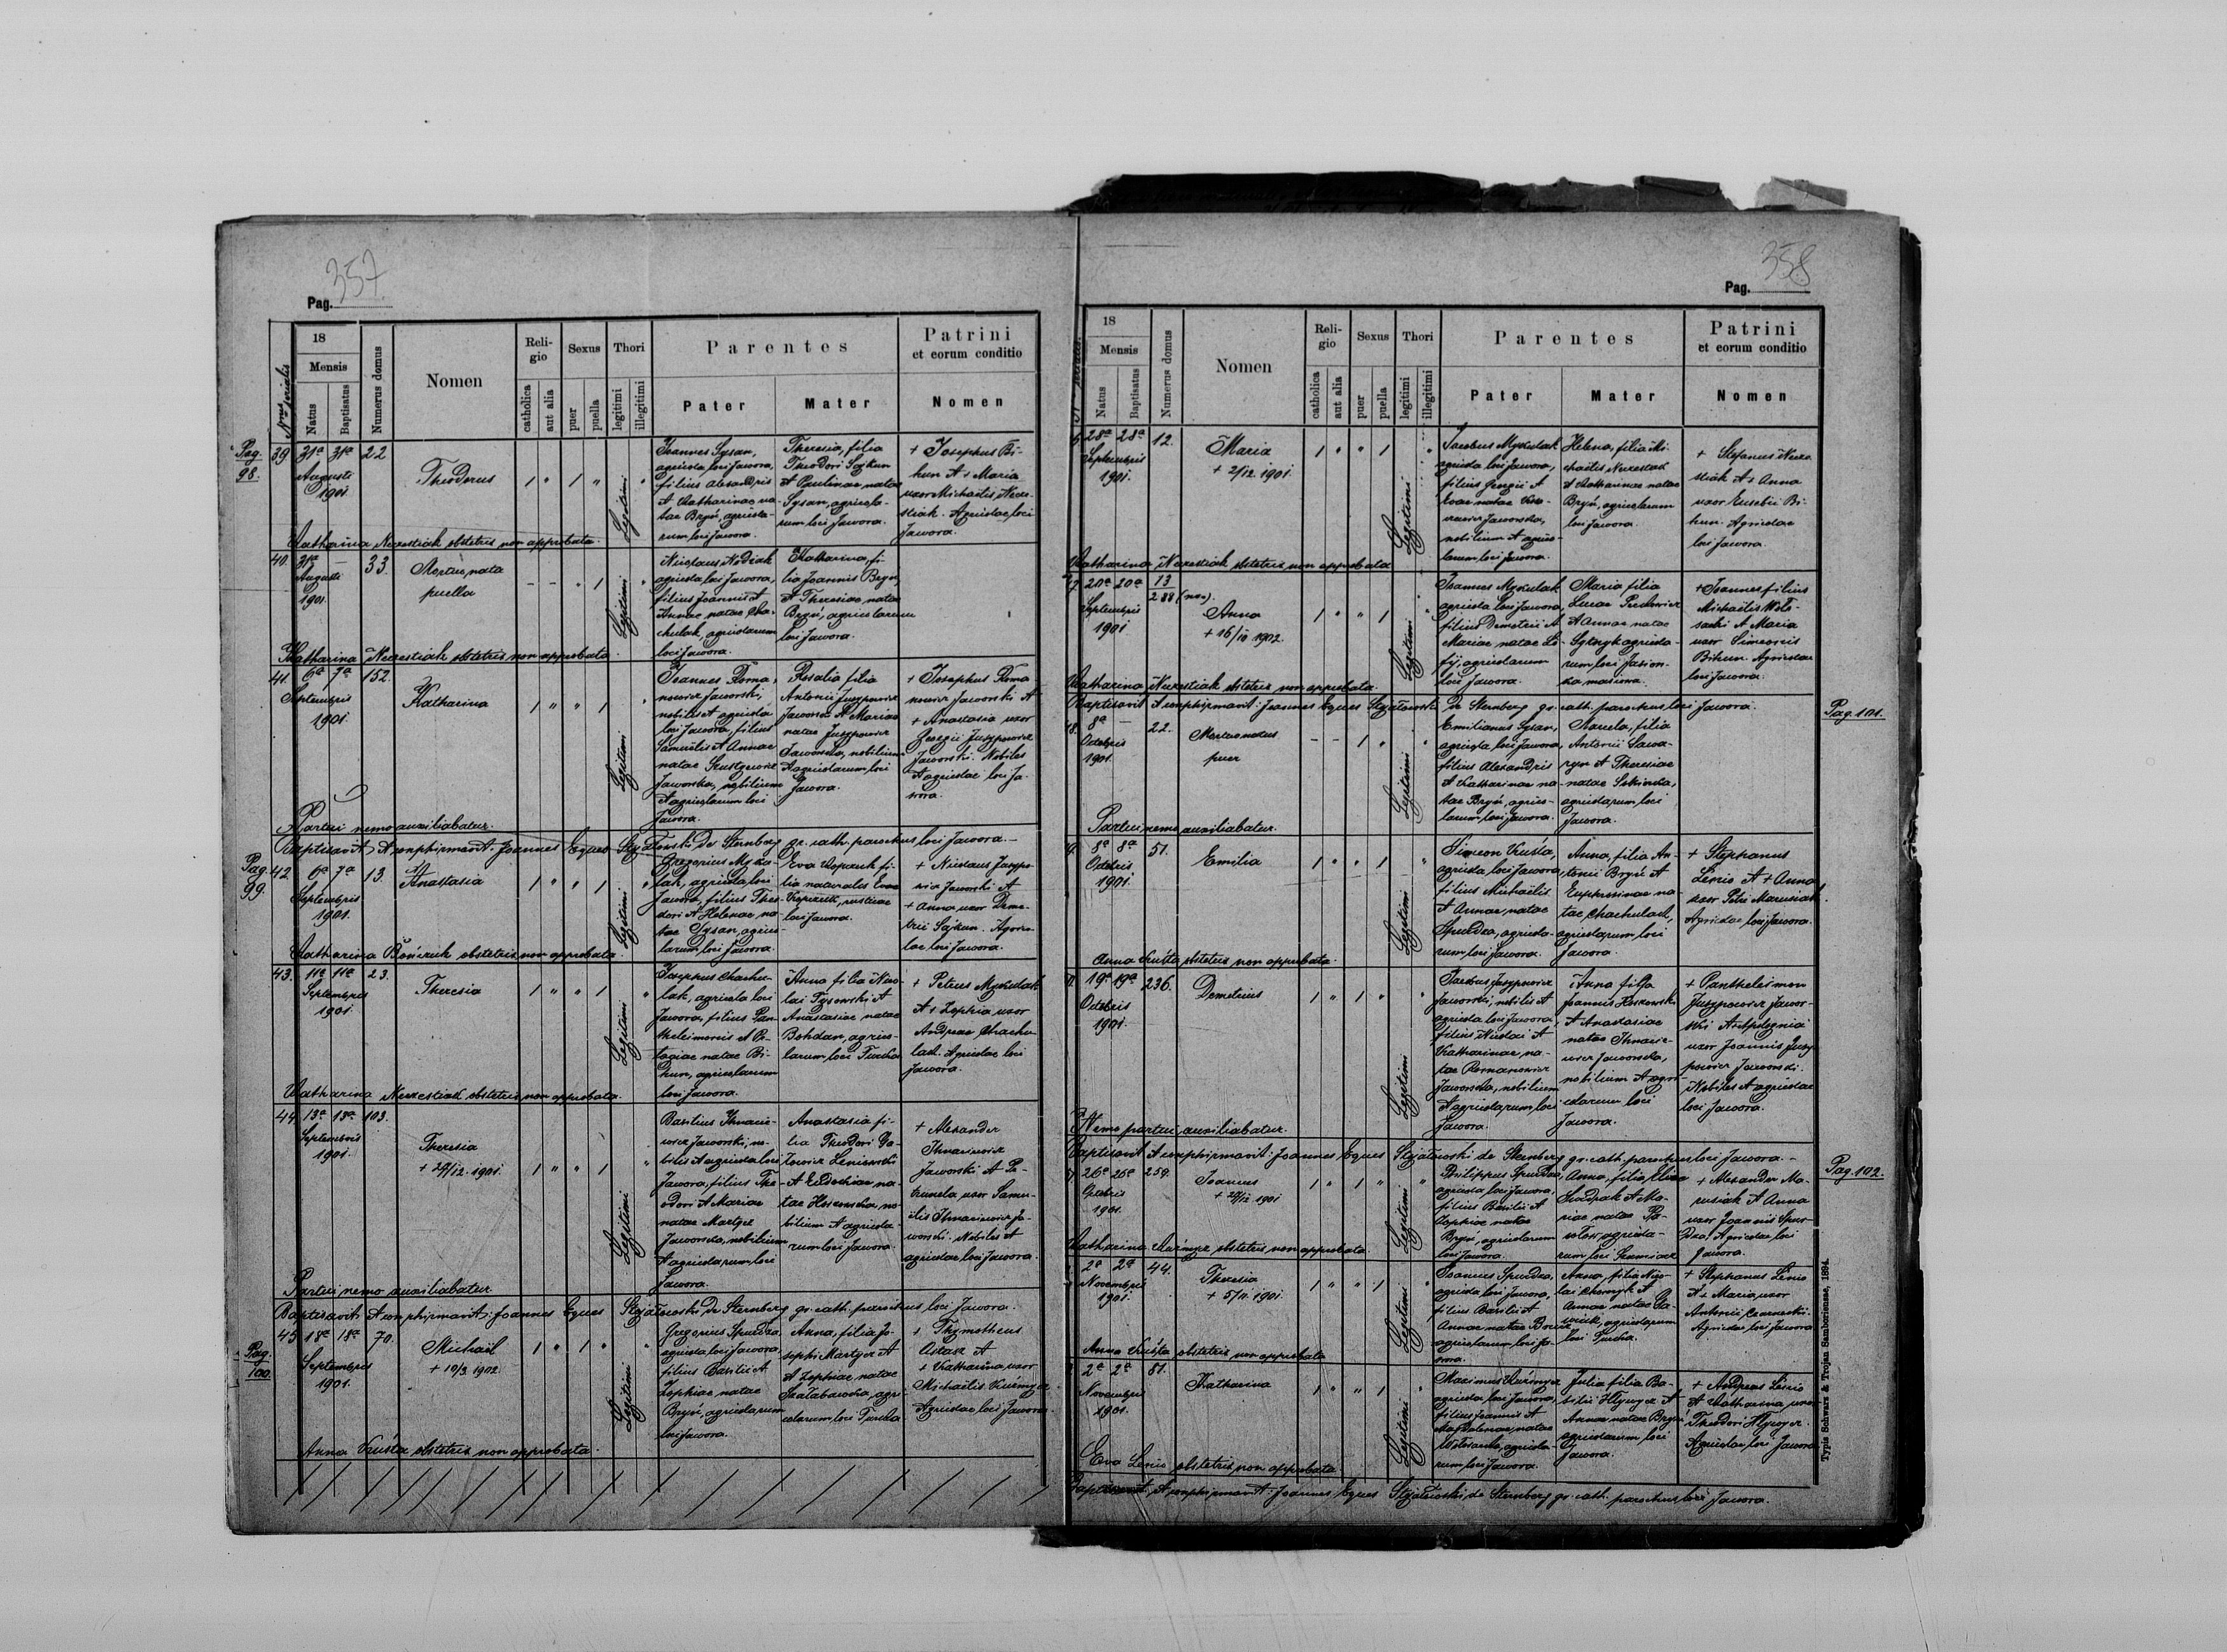 357.
Pag.
Nrus serialis
18
Mensis
Natus
Baptisatus
Numerus domus
Nomen
Reli-
gio
catholica
aut alia
Sexus
puer
puella
Thori
legitimi
illegitimi
Parentes
Pater
Mater
Patrini
et eorum conditio
Nomen
Pag.
98.
39 31a 31a 22
Augusti
1901.
Theodorus
Legitimi
Joannes Sysan,
agricola loci Jawora,
filius Alexandris
et Katharinae na-
tae Bryń, agricola-
rum loci Jawora.
Theresia, filia
Theodori Sajkun
et Paulinae natae
Sysan, agricola-
rum loci Jawora.
+ Josephus Bi-
hun et + Maria
uxor Michaelis Neres-
tiak. Agricolae loci
Jawora.
Katharina Nerestiak obstetrix non approbata.
40. 31a — 33.
Augusti
1901.
Mortua nata
puella
Legitimi
Nicolaus
agricola loci Jawora,
filius Joannis et
Annae natae Cha-
chulak, agricolarum
loci Jawora.
Katharina, fi-
lia Joannis Bryń
et Theresiae natae
Bryń, agricolarum
loci Jawora.
Katharina Nerestiak obstetrix non approbata.
41. 6a 7a 152.
Septembris
1901.
Katharina
Legitimi
Joannes Roma-
nowicz Jaworski,
nobilis et agricola
loci Jawora, filius
Samuelis et Annae
natae
Jaworska, nobilium
et agricolarum loci
Jawora.
Rosalia filia
Antonii Juzypowicz
Jaworski et Mariae
natae Juzypowicz
Jaworska, nobilium
et agricolarum loci
Jawora.
+ Josephus Roma
nowicz Jaworski et
+ Anastasia uxor
Georgii Juzypowicz
Jaworski. Nobiles
et agricolae loci Ja-
wora.
Partui nemo auxiliabatur.
Baptisavit et confirmavit: Joannes Eques Stojałowski de Sternberg gr. cath. parochus loci Jawora.
Pag.
99.
42. 6a 7a 13.
Septembris
1901.
Anastasia
Legitimi
Gregorius Myku-
lak, agricola loci
Jawora, filius Theo-
dori et Helenae na-
tae Sysan, agrico-
larum loci Jawora.
Eva fi-
lia naturalis Evae
rusticae
loci Jawora.
+ Nicolaus Juzypo-
wicz Jaworski et
+ Anna uxor Deme-
trii Sajkun. Agrico-
lae loci Jawora.
Katharina obstetrix non approbata.
43. 11a 11a 23.
Septembris
1901.
Theresia
Legitimi
Josephus Chachu-
lak, agricola loci
Jawora, filius Pan-
theleimonis et Pe-
lagiae natae Bi-
hun, agricolarum
loci Jawora.
Anna filia Nico-
lai Tysowski et
Anastasiae natae
Bohdan, agrico-
larum loci Turcha
+ Petrus Mykulak
et + Zophia uxor
Andreae Chachu-
lak. Agricolae loci
Jawora.
Katharina Nerestiak obstetrix non approbata.
44. 13a 18a 103.
Septembris
1901.
Theresia
+ 29/12. 1901.
Legitimi
Basilius Ihnace-
wicz Jaworski, no-
bilis et agricola loci
Jawora, filius Theo-
dori et Mariae
natae Martycz
Jaworska, nobilium
et agricolarum loci
Jawora.
Anastasia fi-
lia Theodori
et Eudochiae na-
tae no-
bilium et agricola-
rum loci Jawora.
+ Alexander
Ihnacewicz
Jaworski et Pe-
tronela uxor Samu-
elis Ihnacewicz Ja-
worski. Nobiles et
agricolae loci Jawora.
Partui nemo auxiliabatur.
Baptisavit et confirmavit: Joannes Eques Stojałowski de Sternberg gr. cath. parochus loci Jawora.
Pag.
100.
45 18a 18a 70.
Septembris
1901.
Michaël
+ 10/3 1902.
Legitimi
Gregorius Spurdza
agricola loci Jawora,
filius Basilii et
Zophiae natae
Bryń, agricolarum
loci Jawora.
Anna, filia Jo-
sephi Martycz et
et Zophiae natae
agri-
colarum loci Turcha
+ Thymotheus
et
+ Katharina uxor
Michaëlis
Agricolae loci Jawora.
Anna Kuśta obstetrix non approbata.
358
Pag.
18
Mensis
Natus
Baptisatus
Numerus domus
Nomen
Reli-
gio
catholica
aut alia
Sexus
puer
puella
Thori
legitimi
illegitimi
Parentes
Pater
Mater
Patrini
et eorum conditio
Nomen
28a 28a 12.
Septembris
1901.
Maria
+ 2/12. 1901.
Legitimi
Jacobus Mykulak
agricola loci Jawora,
filius Georgii et
Evae natae
Jaworska,
nobilium et agrico-
larum loci Jawora.
Helena, filia Mi-
chaëlis Nerestiak
et Katharinae natae
Bryń, agricolarum
loci Jawora.
+ Stefanus Neres-
tiak et + Anna
uxor Eusebii Bi-
hun. Agricolae
loci Jawora.
Katharina Nerestiak obstetrix non approbata
20a 20a 13
288 (nov).
Septembris
1901
Anna
+ 16/10 1902.
Legitimi
Joannes Mykulak
agricola loci Jawora,
filius Demetrii et
Mariae natae
agricolarum
loci Jawora.
Maria filia
Lucae
et Annae natae
agricola-
rum loci Jasion-
ka masiowa.
+ Joannes filius
Michaëlis Woło-
et Maria
uxor Simeonis
Bihun. Agricolae
loci Jawora.
Katharina Nerestiak obstetrix non approbata.
Baptisavit et confirmavit: Joannes Eques Stojałowski de Sternberg gr. cath. parochus loci Jawora.
Pag. 101.
8a — 22.
Octobris
1901.
Mortuo natus
puer
Legitimi
Emilianus Sysan,
agricola loci Jawora,
filius Alexandris
et Katharinae na-
tae Bryń, agrico-
larum loci Jawora.
Maruela, filia
Antonii Sawa-
ryn et Theresiae
natae
agricolarum loci
Jawora.
Partui nemo auxiliabatur.
8a 8a 51.
Octobris
1901
Emilia
Legitimi
Simeon Kuśta,
agricola loci Jawora,
filius Michaëlis
et Annae, natae
Spurdza, agricola-
rum loci Jawora.
Anna, filia An-
tonii Bryń et
Euphrosinae na-
tae Chachulak,
agricolarum loci
Jawora.
+ Stephanus
Lenio et + Anna
uxor Petri Marusiak.
Agricolae loci Jawora.
Anna Kuśta obstetrix non approbata.
19a 19a 236.
Octobris
1901.
Demetrius
Legitimi
Jacobus Juzypowicz
Jaworski, nobilis et
agricola loci Jawora,
filius Nicolai et
Katharinae na-
tae Romanowicz
Jaworska, nobilium
et agricolarum loci
Jawora.
Anna filia
Joannis
et Anastasiae
natae Ihnace-
wicz Jaworska,
nobilium et agri-
colarum loci
Jawora.
+ Pantheleimon
Juzypowicz Jawor-
ski et Apolognia
uxor Joannis Juzy-
powicz Jaworski.
Nobiles et agricolae
loci Jawora.
Nemo partui auxiliabatur.
Baptisavit et confirmavit: Joannes Eques Stojałowski de Sternberg gr. cath. parochus loci Jawora.
Pag. 102.
26a 26a 259.
Octobris
1901.
Joannes
1901
Legitimi
Philippus Spurdza,
agricola loci Jawora,
filius Basilii et
Zophiae natae
Bryń, agricolarum
loci Jawora.
Anna, filia Eliae
et Ma-
riae natae
agricola-
rum loci
+ Alexander Ma-
rusiak et Anna
uxor Joannis Spur-
dza. Agricolae loci
Jawora.
Katharina obstetrix non approbata.
2a 2a 44.
Novembris
1901.
Theresia
+ 5/11. 1901.
Legitimi
Joannes Spurdza,
agricola loci Jawora,
filius Basilii et
Annae natae
agricolarum loci Ja-
wora.
Anna, filia Nico-
lai et
Annae natae
agricolarum
loci Turcha.
+ Stephanus Lenio
et + Maria uxor
Antonii
Agricolae loci Jawora
Anna Kuśta obstetrix non approbata
2a 2a 81.
Novembris
1901.
Katharina
Legitimi
Maximus
agricola loci Jawora,
filius Joannis et
Magdalenae natae
agricola-
rum loci Jawora.
Julia filia Ba-
silii Hlywycz et
Annae natae Bryń
agricolarum loci
Jawora.
+ Andreas Lenio
et Katharina uxor
Theodori Hlywycz.
Agricolae loci Jawora
Eva Lenio obstetrix non approbata.
Baptisavit et confirmavit: Joannes Eques Stojałowski de Sternberg gr. cath. parochus loci Jawora.
Typis Schwarz & Trojan Samboriense, 1894.